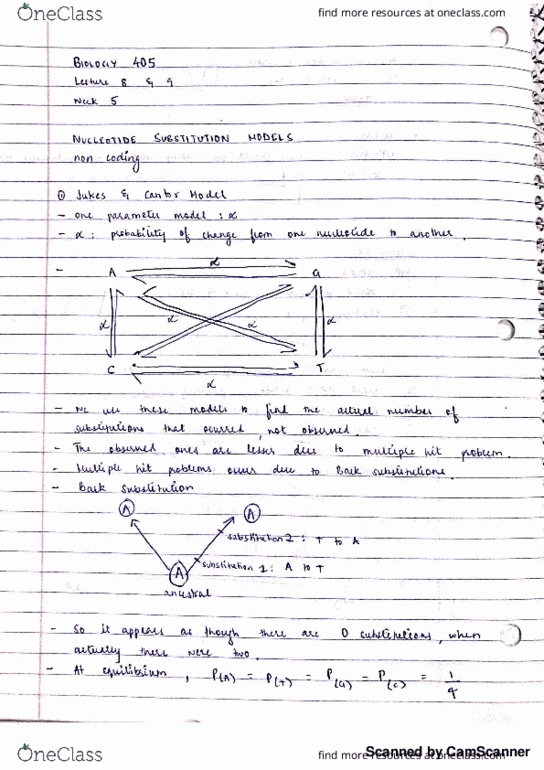 OneClass
find more resources at oneclass.com
BIOLOGY 405
Lecture 8 & 9
Week 5
NUCLEOTIDE SUBSTITUTION MODELS
non coding
① Jukes & Cantor Model
- one parameter model : α
- α : probability of change from one nucleotide to another.
- A α G
α α α α
C α T
- We use these models to find the actual number of
substitutions that ocurred, not observed.
- The observed ones are lesser due to multiple hit problem.
- Multiple hit problems occur due to Back substitutions.
- Back substitution
A A
substitution 2 : T to A
substitution 1 : A to T
A
ancestral
- So it appears as though there are 0 substitutions, when
actually there were two.
- At equilibrium, P(A) = P(T) = P(G) = P(C) = 1/4
OneClass
find more resources at oneclass.com
Scanned by CamScanner